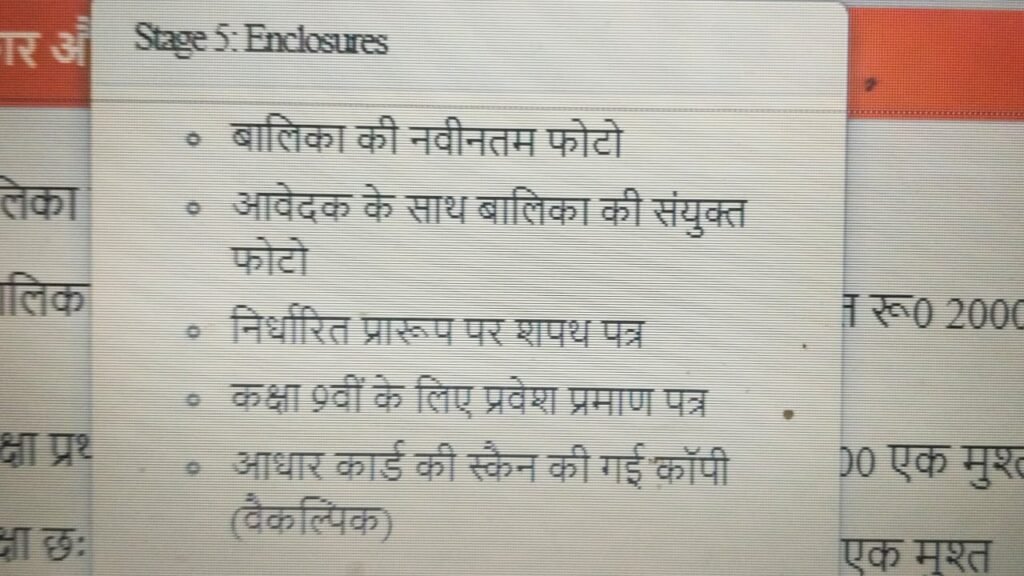 Stage 5: Enclosures
बालिका की नवीनतम फोटो
आवेदक के साथ बालिका की संयुक्त
फोटो
निर्धारित प्रारूप पर शपथ पत्र
कक्षा 9वीं के लिए प्रवेश प्रमाण पत्र
आधार कार्ड की स्कैन की गई कॉपी
(वैकल्पिक)
रू0 2000
एक मुश्त
एक मुश्त